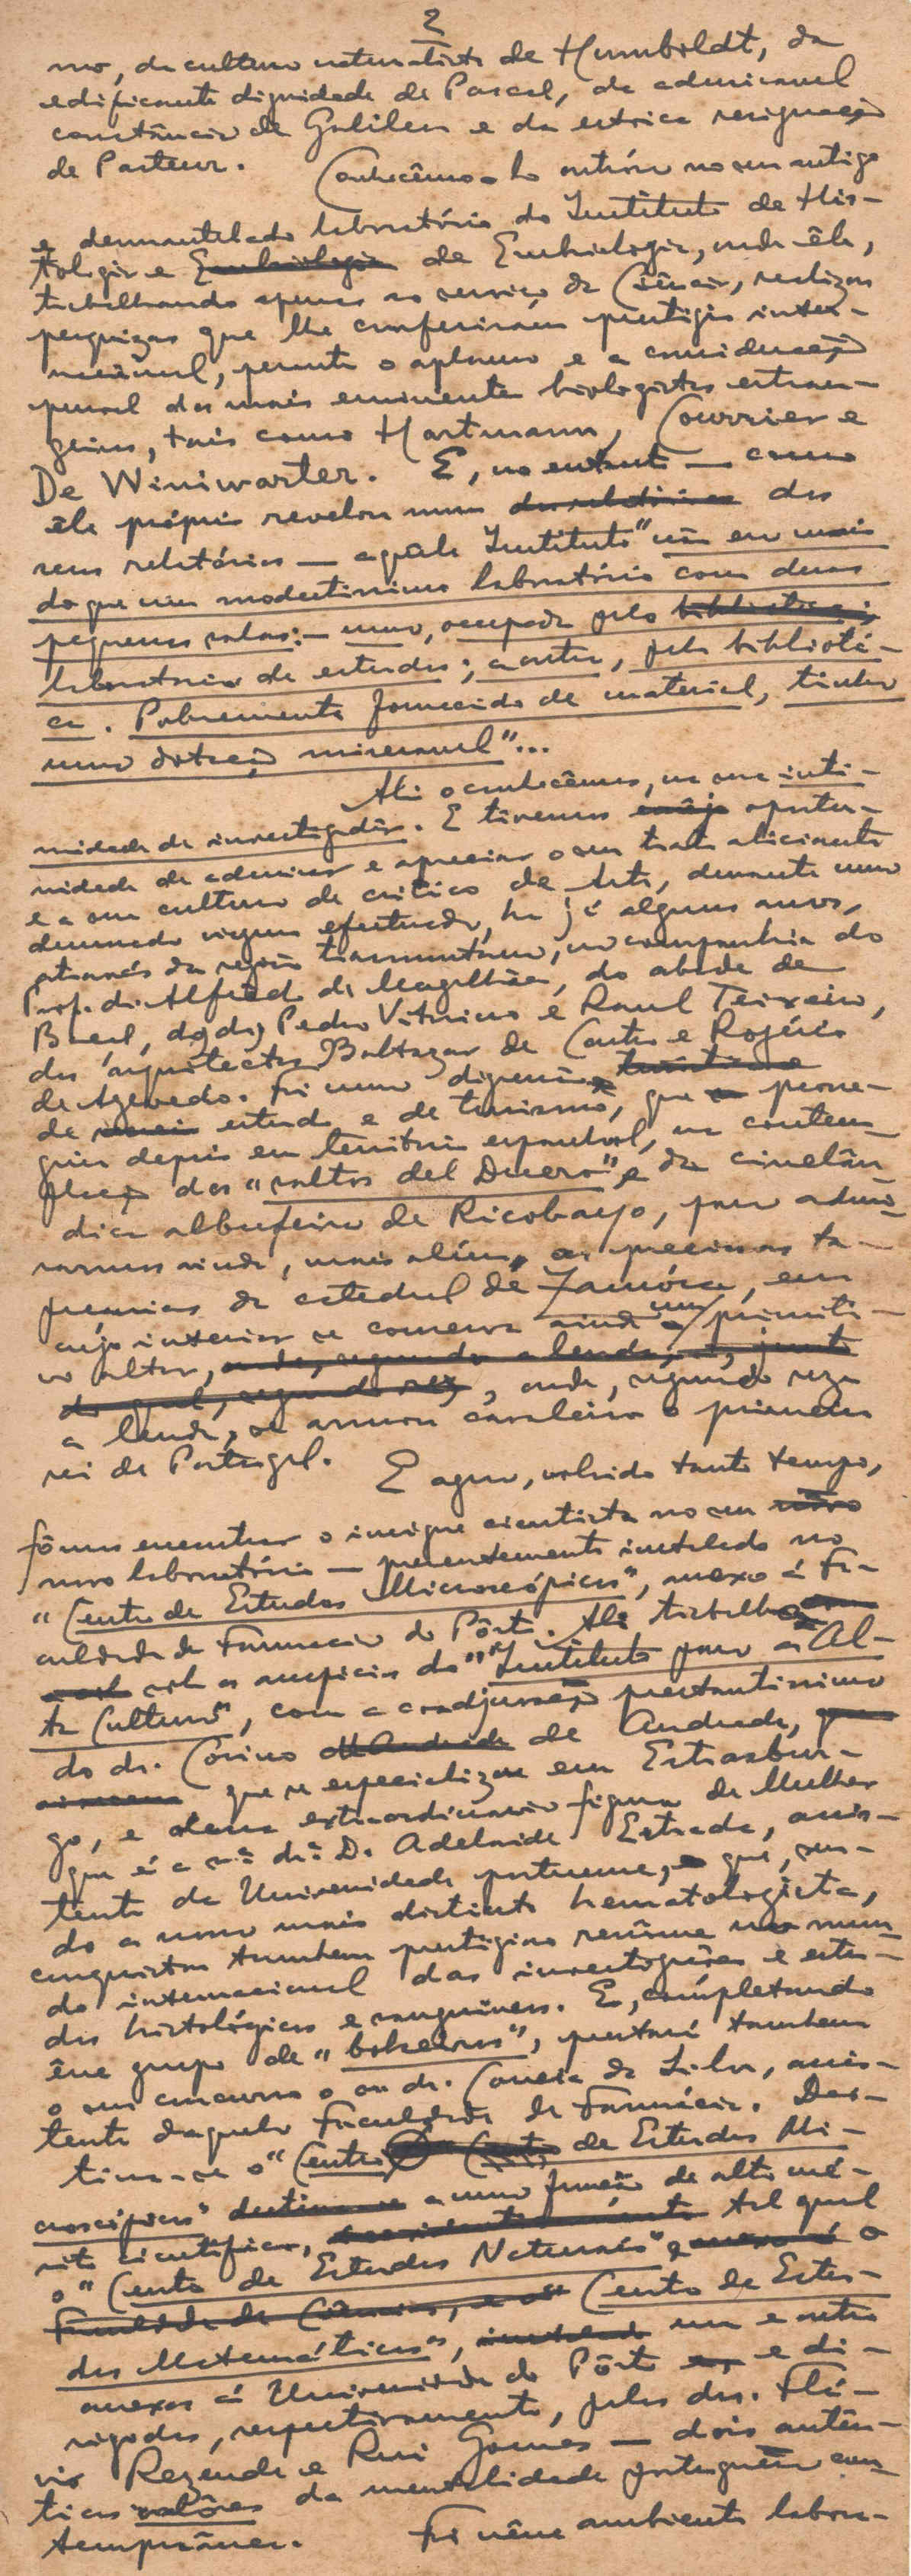 2
mo, da cultura naturalista de Humboldt, da
edificante dignidade de Pascal, da admiravel
constância de Galileu e da estoica resignação
de Pasteur.
Conhecêmo-lo outróra no seu antigo
e desmantelado laboratório do Instituto de His-
tologia e Embriologia de Embriologia, onde êle,
trabalhando apenas ao serviço da Ciência, realizou
pesquizas que lhe conferiram prestigio inter-
nacional, perante o aplauso e a consideração
pessoal dos mais eminentes biologistas estran-
geiros, tais como Hartmann, Courrier e
De Winiwarter. E, no entanto — como
êle próprio revelou num dos relatórios dos
seus relatórios — aquele Instituto "não era mais
do que um modestissimo laboratório com duas
pequenas salas: — uma, ocupada pelo biblioteca;
laboratorio de estudos; a outra, pela bibliote-
ca. Pobremente fornecido de material, tinha
uma dotação miseravel"...
Ali o conhecêmos, na sua inti-
midade de investigador. E tivemos ensejo oportu-
nidade de admirar e apreciar o seu trato aliciante
e a sua cultura de critico de Arte, durante uma
demorada viagem efectuada, ha já alguns anos,
através da região transmontana, na companhia do
Prof. dr. Alfredo de Magalhães, do abade de
Baçal, dos drs. Pedro Vitorino e Raul Teixeira,
dos arquitectos Baltazar de Castro e Rogério
de Azevedo. Foi uma digressão turistica
de estudo e de turismo, que prosse-
guiu depois em território espanhol, na contem-
plação dos "saltos del Duero" e da cinelân-
dica albufeira de Ricobayo, para admi-
rarmos ainda, mais além, as preciosas ta-
peçarias da catedral de Zamóra, em
cujo interior se conserva ainda um primiti-
vo altar, onde, segundo a lenda, junto
do qual, segundo reza, onde, segundo reza
a lenda, se armou cavaleiro o primeiro
rei de Portugal.
E agora, volvido tanto tempo,
fômos encontrar o insigne cientista no seu novo
novo laboratório — presentemente instalado no
"Centro de Estudos Microscópicos", anexo á Fa-
culdade de Farmacia do Pôrto. Ali trabalha
sob os auspicios do "Instituto para a Al-
ta Cultura", com a coadjuvação prestantissima
do dr. Corino de Andrade de Andrade,
que se especializou em Estrasbur-
go, e dessa extraordinaria figura de Mulher
que é a srª drª D. Adelaide Estrada, assis-
tente da Universidade portuense, que, sen-
do a nossa mais distinta hematologista,
conquistou tambem prestigioso renôme no mun-
do internacional das investigações e estu-
dos histológicos e sanguíneos. E, completando
êsse grupo de "bolseiros", prestará tambem
o seu concurso o sr. dr. Correia da Silva, assis-
tente daquela Faculdade de Farmácia. Des-
tina-se o "Centro de Estudos Mi-
croscópicos" destina-se a uma função de alto mé-
rito cientifico, tal qual
o "Centro de Estudos Naturais" e anexo á o
Faculdade de Ciencias, e o "Centro de Estu-
dos Matemáticos", instalado um e outro
anexos á Universidade do Pôrto e di-
rigidos, respectivamente, pelos drs. Flá-
vio Rezende e Rui Gomes — dois autên-
ticos valôres da mentalidade portuguêsa con-
temporânea.
Foi nêsse ambiente labora-